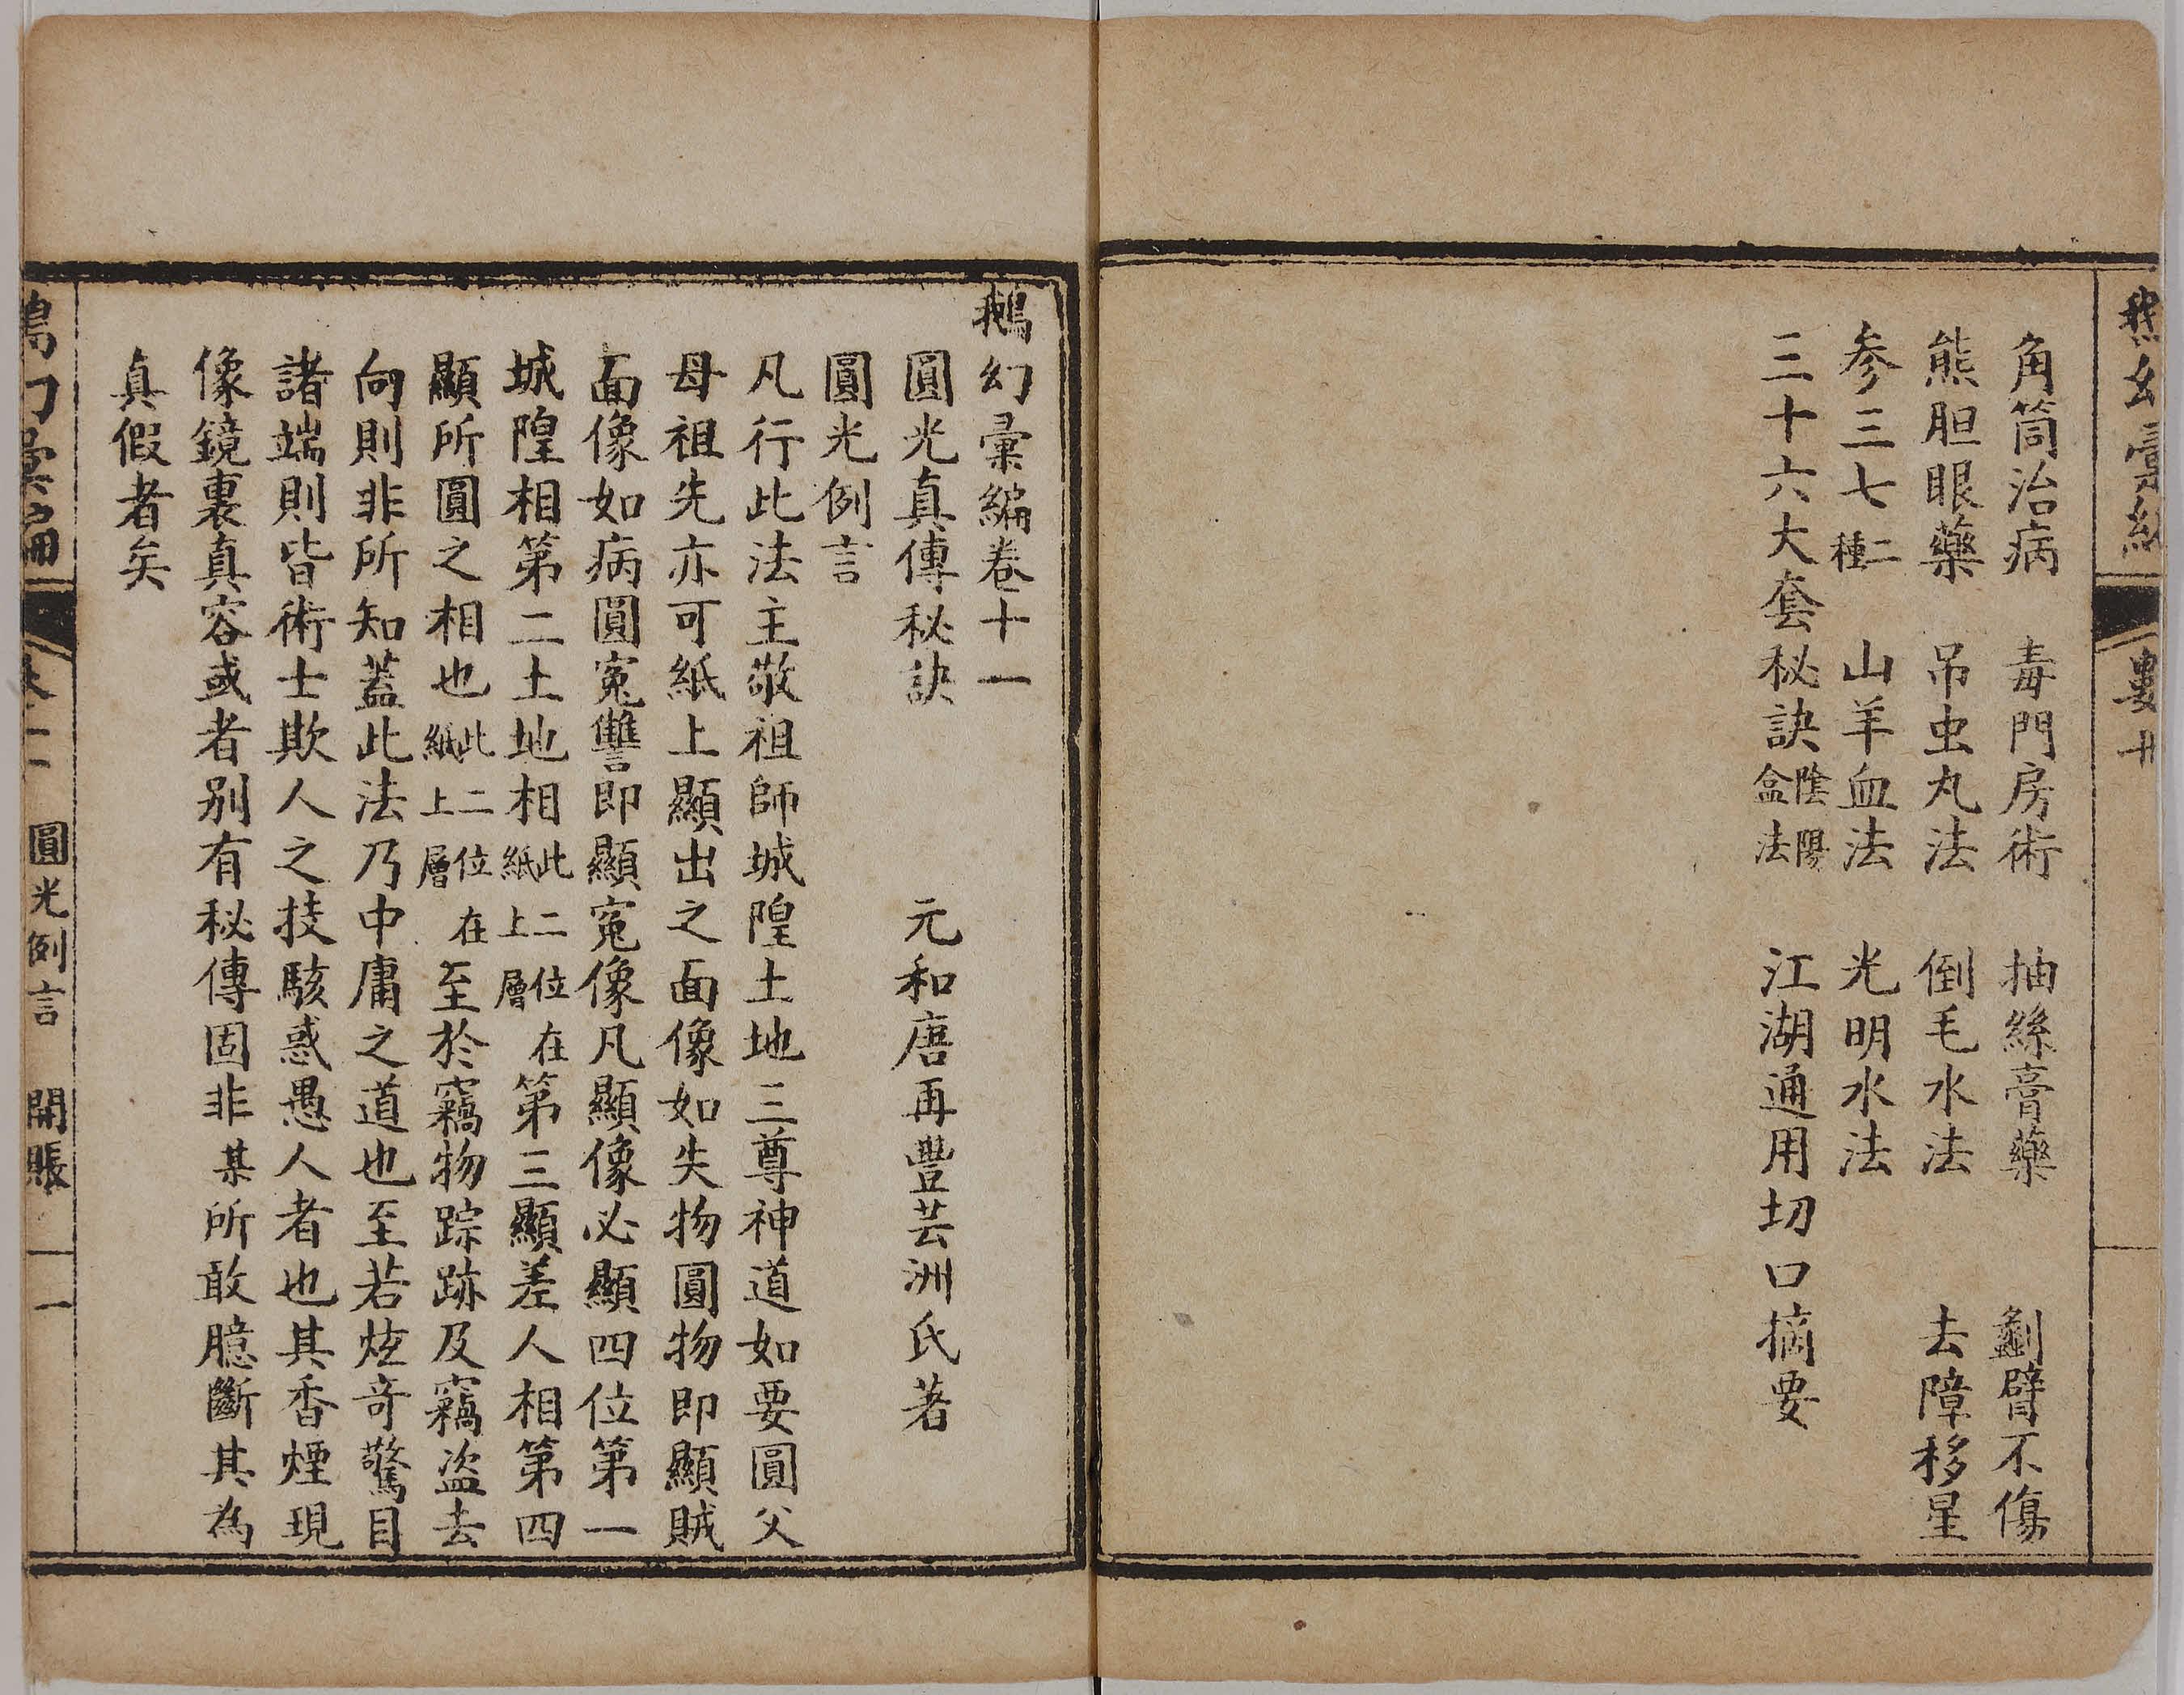 鵝幻彙編
婁十
角筒治病 毒門房術 抽絲膏藥 劙臂不傷
熊胆眼藥 吊虫丸法 倒毛水法 去障移星
参三七二種 山羊血法 光明水法
三十六大套秘訣陰陽盒法 江湖通用切口摘要
鵝幻彙編卷十一
圓光真傳秘訣 元和唐再豐芸洲氏著
圓光例言
凡行此法主敬祖師城隍土地三尊神道如要圓父
母祖先亦可紙上顯出之面像如失物圓物即顯賊
面像如病圓寃讐即顯寃像凡顯像必顯四位第一
城隍相第二土地相此二位在紙上層第三顯差人相第四
顯所圓之相也此二位在紙上層至於竊物踪跡及竊盜去
向則非所知蓋此法乃中庸之道也至若炫奇驚目
諸端則皆術士欺人之技駭惑愚人者也其香煙現
像鏡裏真容或者别有秘傳固非某所敢臆斷其為
真假者矣
鵝幻彙編
圓光例言 開賬
一